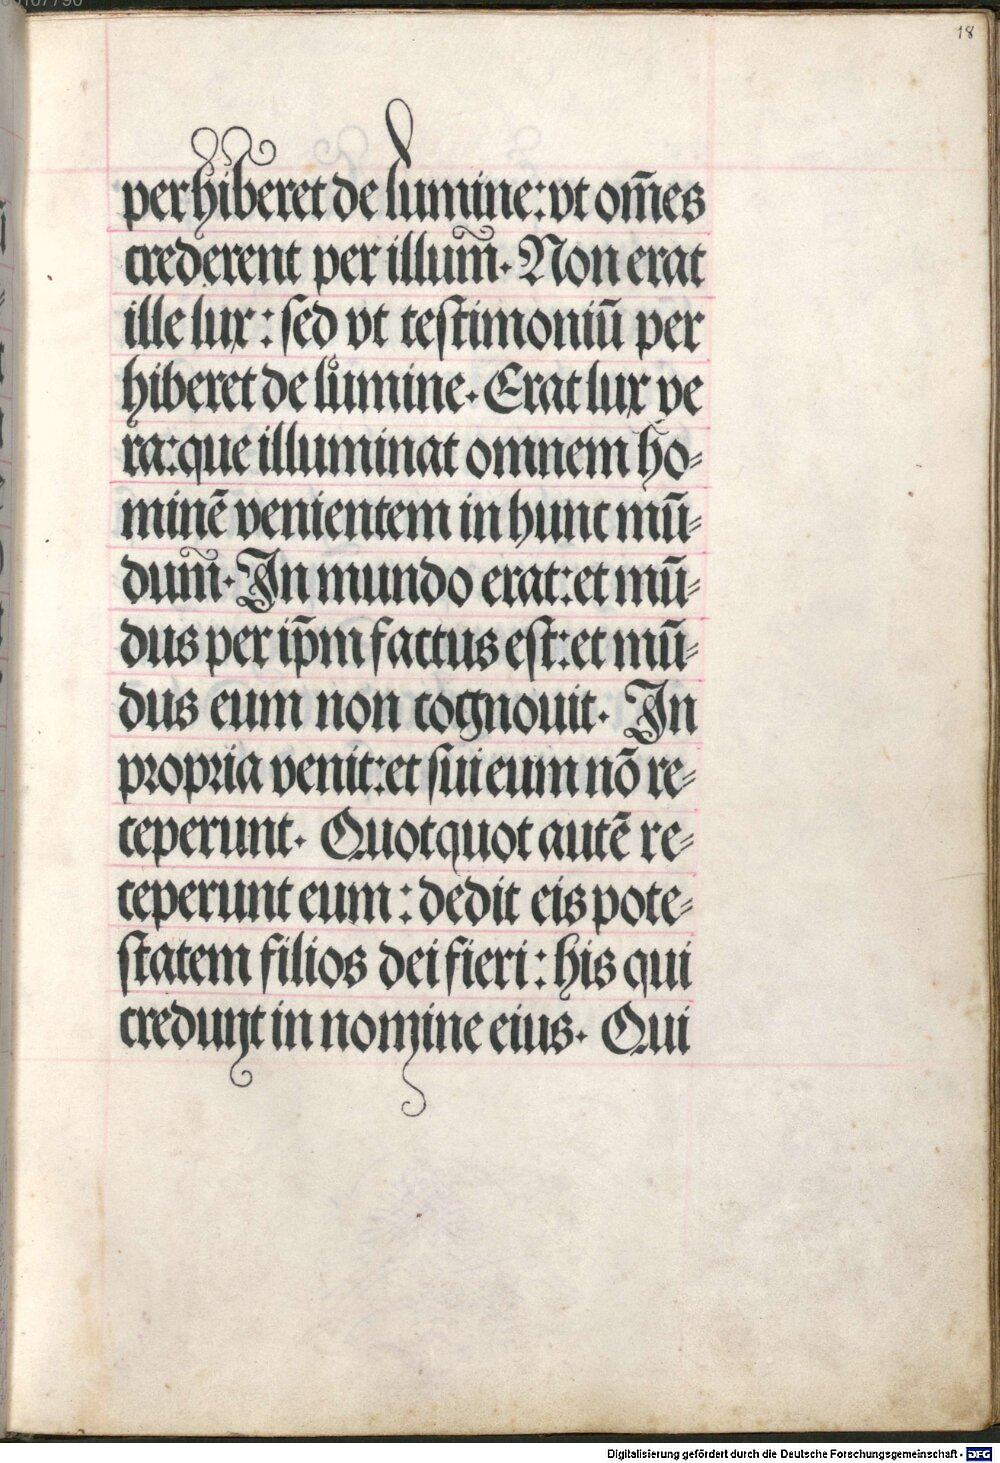 18
perhiberet de lumine: vt om̄es
crederent per illum̄. Non erat
ille lux: sed vt testimoniū per
hiberet de lumine. Erat lux ve
ra: que illuminat omnem ho⸗
minē venientem in hunc mū⸗
dum̄. In mundo erat: et mū⸗
dus per ip̄m factus est: et mū⸗
dus eum non cognouit. In
propria venit: et sui eum nō re⸗
ceperunt. Quotquot autē re⸗
ceperunt eum: dedit eis pote⸗
statem filios dei fieri: his qui
credunt in nomine eius. Qui
Digitalisierung gefördert durch die Deutsche Forschungsgemeinschaft - DFG